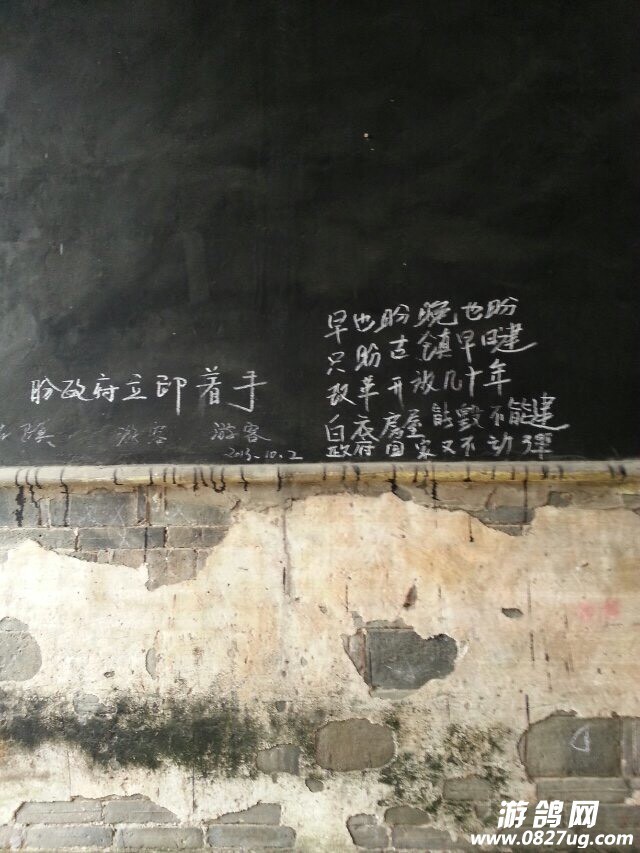 早也盼晚也盼
只盼古镇早日建
改革开放几十年
白底房屋能毁不能建
政府国家又不动弹
盼政府立即着手
游客 游客
2013.10.2
游鸽网
www.0827ug.com